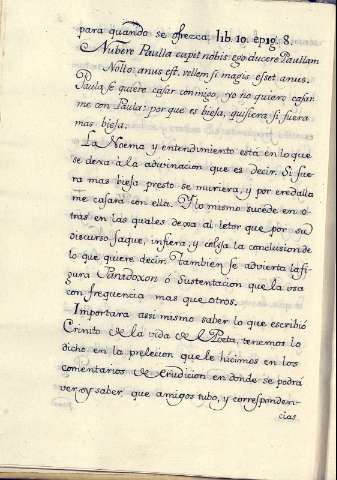 para quando se ofrezca, lib. 10. epig. 8.
Nubere Paulla cupit nobis: ego ducere Paullam
Nolo: anus est. vellem si magis esset anus.
Paula se quiere casar conmigo, yo no quiero casar
me con Paula: por que es bieja, quisiera, si fuera
mas bieja.
La Noema y entendimiento está en lo que
se dexa à la adivinacion que es decir. Si fue
ra mas bieja presto se muriera, y por eredalla
me casara con ella. Y lo mismo sucede en o
tras en las quales dexa al letor que por su
discurso saque, infiera, y colija la conclusion de
lo que quiere decir. Tambien se advierta la fi
gura Paradoxon ó Sustentacion que la usa
con frequencia mas que otros.
Importara assi mismo saber lo que escribió
Crinito de la vida de el Poeta, tenemos lo
dicho en la prelecion que le hicimos en los
comentarios de erudicion en donde se podrá
ver, y saber, que amigos tubo, y corresponden-
cias